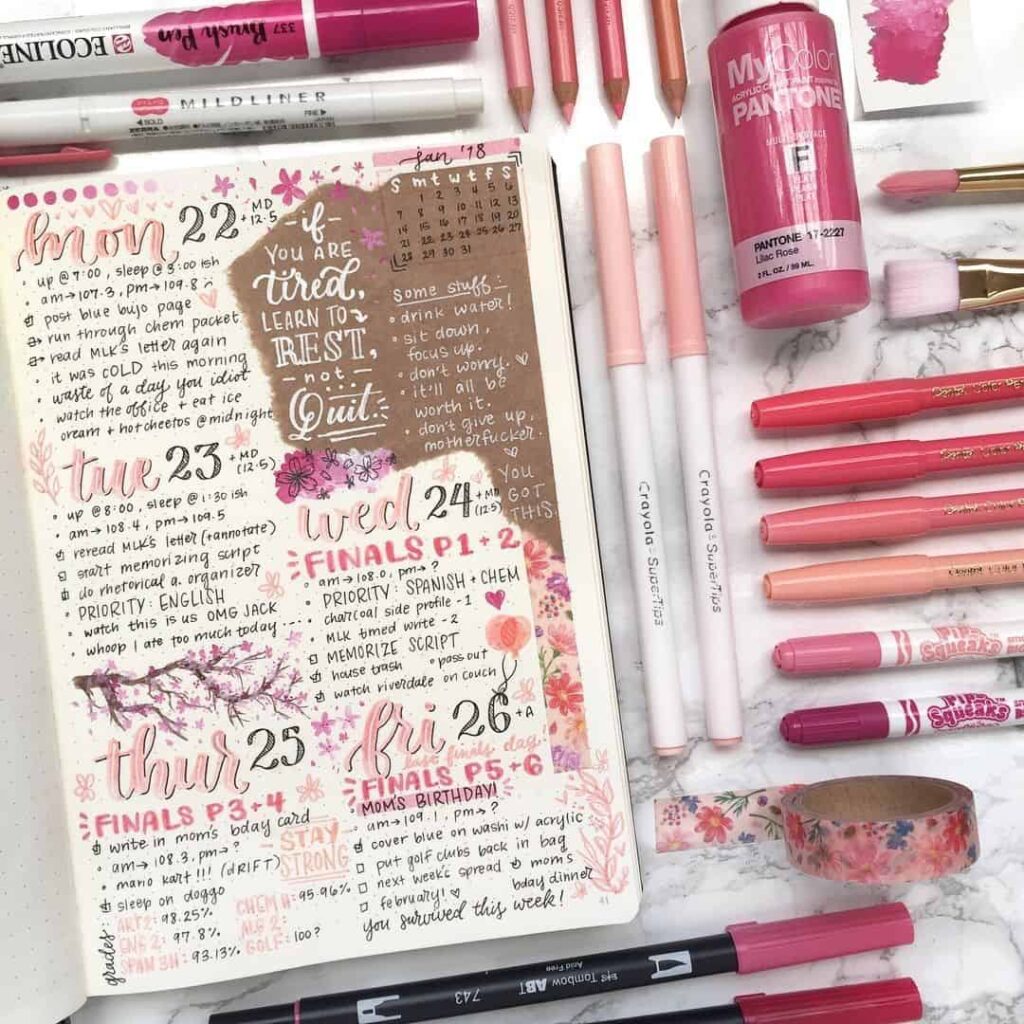 ECOLINE
337 Brush Pen
MILDLINER
BOLD
FINE
jan '18
S m t w t f S
1 2 3 4 5 6
7 8 9 10 11 12 13
14 15 16 17 18 19 20
21 22 23 24 25 26 27
28 29 30 31
mon 22 + MD
12.5
• up @ 7:00, sleep @ 3:00 ish
• am → 107.3, pm → 109.8
post blue bujo page
run through chem packet
read MLK's letter again
• it was COLD this morning
• waste of a day you idiot
• watch the office + eat ice
cream + hot cheetos @ midnight
if
YOU ARE
tired,
LEARN TO
REST,
not
Quit.
some stuff:
• drink water!
• sit down,
focus up.
• don't worry.
• it'll all be
worth it.
• don't give up,
motherfucker.
YOU
GOT
THIS.
tue 23 + MD
(12.5)
• up @ 8:00, sleep @ 1:30 ish
• am → 108.4, pm → 109.5
reread MLK's letter (+annotate)
start memorizing script
do rhetorical a. organizer
• PRIORITY: ENGLISH
• watch this is us OMG JACK
• whoop I ate too much today ....
wed 24 + MD
(12.5)
FINALS P1 + 2
• am → 108.0, pm → ?
• PRIORITY: SPANISH + CHEM
• charcoal side profile - 1
• MLK timed write - 2
MEMORIZE SCRIPT
house trash • pass out
watch riverdale on couch
thur 25
FINALS P3 + 4
write in mom's bday card
• am → 108.3, pm → ?
• mario kart!!! (dRIFT)
sleep on doggo
STAY
STRONG
grades:
ART 2: 98.25%
ENG 2: 97.8%
SPAN 3H: 93.13%
CHEM H: 95.96%
ALG 2:
GOLF: 100?
fri 26 + A
last finals day!
FINALS P5 + 6
MOM'S BIRTHDAY!
• am → 109.1, pm → ?
cover blue on washi w/ acrylic
put golf clubs back in bag
next week's spread
mom's
bday dinner
february!
you survived this week!
41
MyColor
ACRYLIC CRAFT PAINT
PANTONE
MULTI-SURFACE
F
PANTONE 17-2227
Lilac Rose
2 FL. OZ. / 59 ML.
Crayola SuperTips
Crayola SuperTips
Pentel Color Pen
Pentel Color Pen
Pentel Color Pen
Pentel Color Pen
Pip Squeaks
Pip Squeaks
Tombow ABT
Acid Free
743